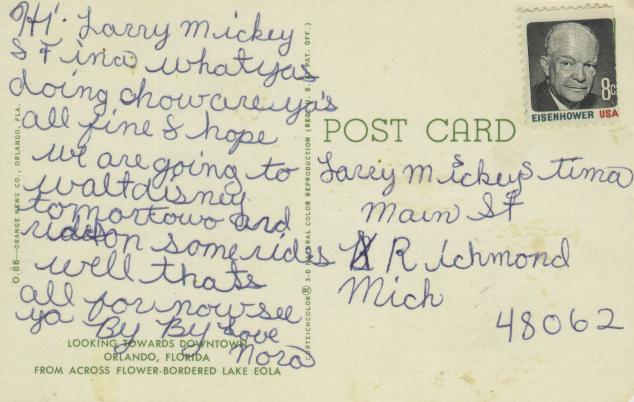 Hi Larry Mickey
& Tina whatyas
doing howare ya's
all fine I hope
we are going to
waltdisney
tomortowo and
on some rides
well thats
all for now see
ya By By Love
Nora
LOOKING TOWARDS DOWNTOWN
ORLANDO, FLORIDA
FROM ACROSS FLOWER-BORDERED LAKE EOLA
O.86—ORANGE NEWS CO., ORLANDO, FLA.
3-D NATURAL COLOR REPRODUCTION (REG. U. S. PAT. OFF.)
POST CARD
EISENHOWER USA
8c
Larry Mickeys Tina
Main St
Richmond
Mich
48062